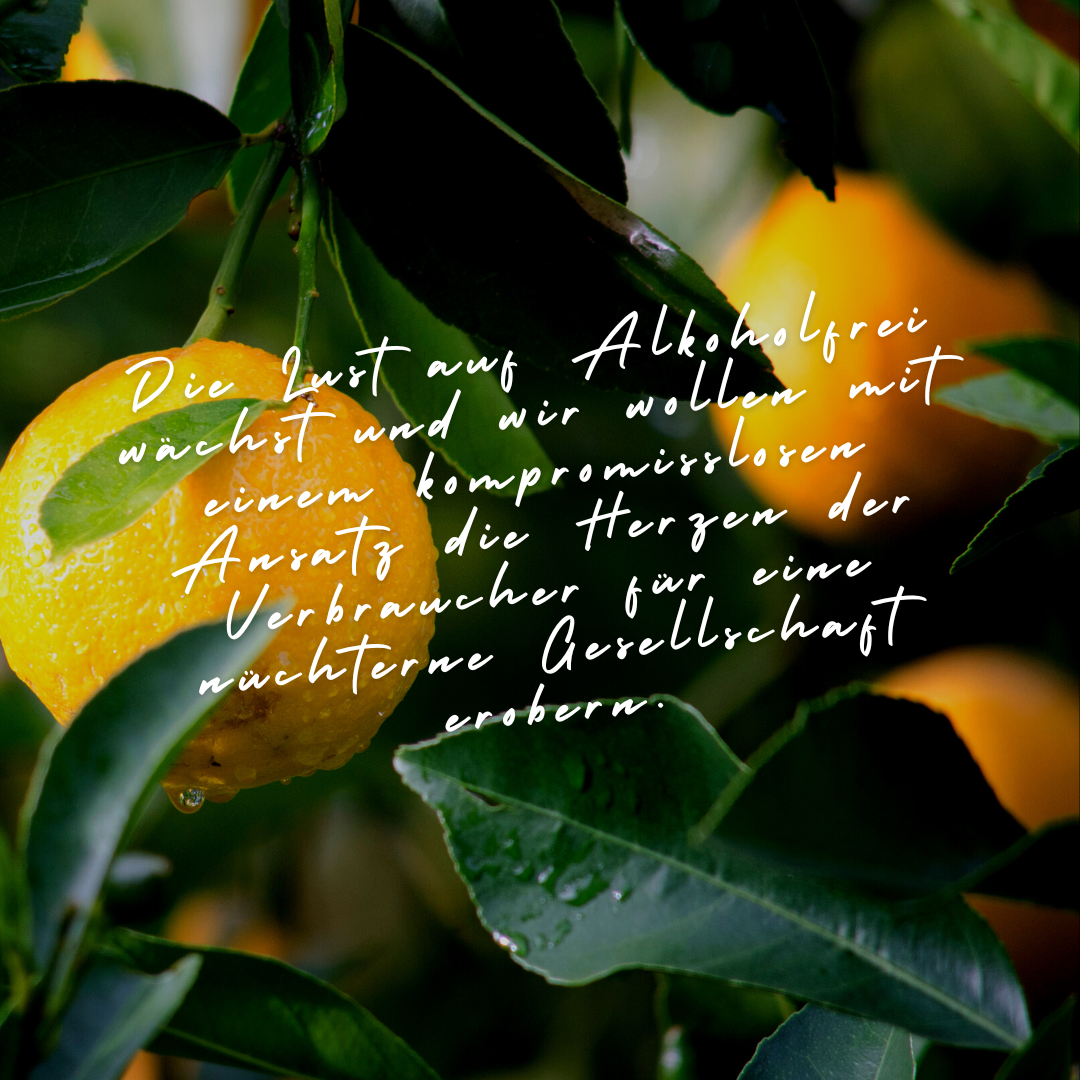 Die Lust auf Alkoholfrei
wächst und wir wollen mit
einem kompromisslosen
Ansatz die Herzen der
Verbraucher für eine
nüchterne Gesellschaft
erobern.